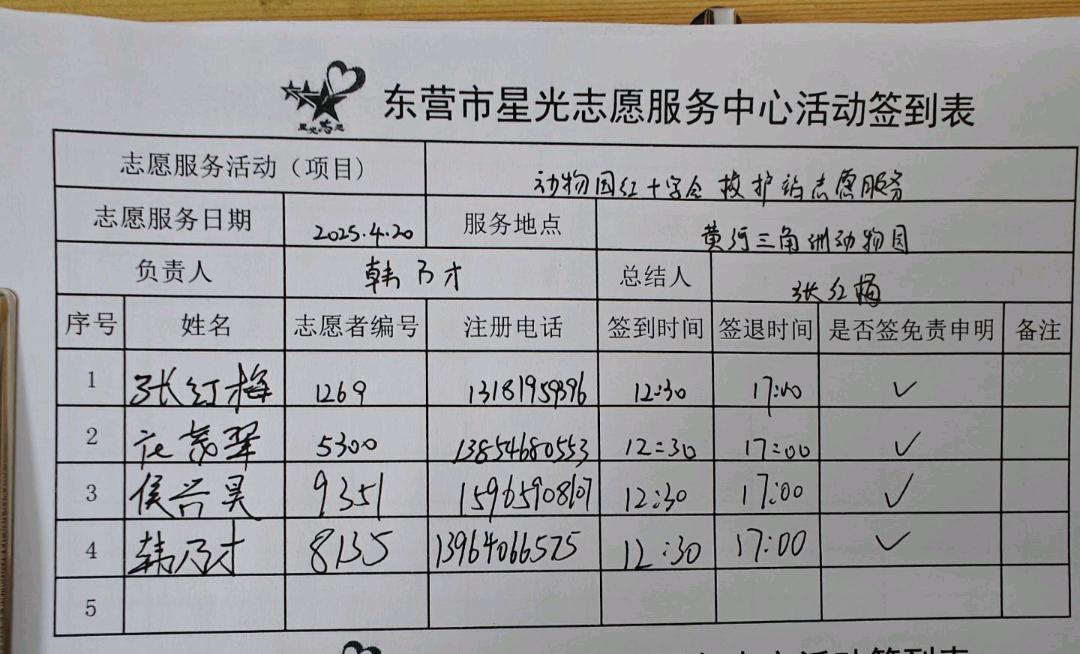 星光志愿
东营市星光志愿服务中心活动签到表
志愿服务活动（项目） 动物园红十字会救护站志愿服务
志愿服务日期 2025.4.20 服务地点 黄河三角洲动物园
负责人 韩乃才 总结人 张红梅
序号 姓名 志愿者编号 注册电话 签到时间 签退时间 是否签免责申明 备注
1 张红梅 1269 13181959396 12:30 17:00 ✓
2 5300 13854680553 12:30 17:00 ✓
3 侯兴昊 9351 15965908107 12:30 17:00 ✓
4 韩乃才 8135 13964066525 12:30 17:00 ✓
5